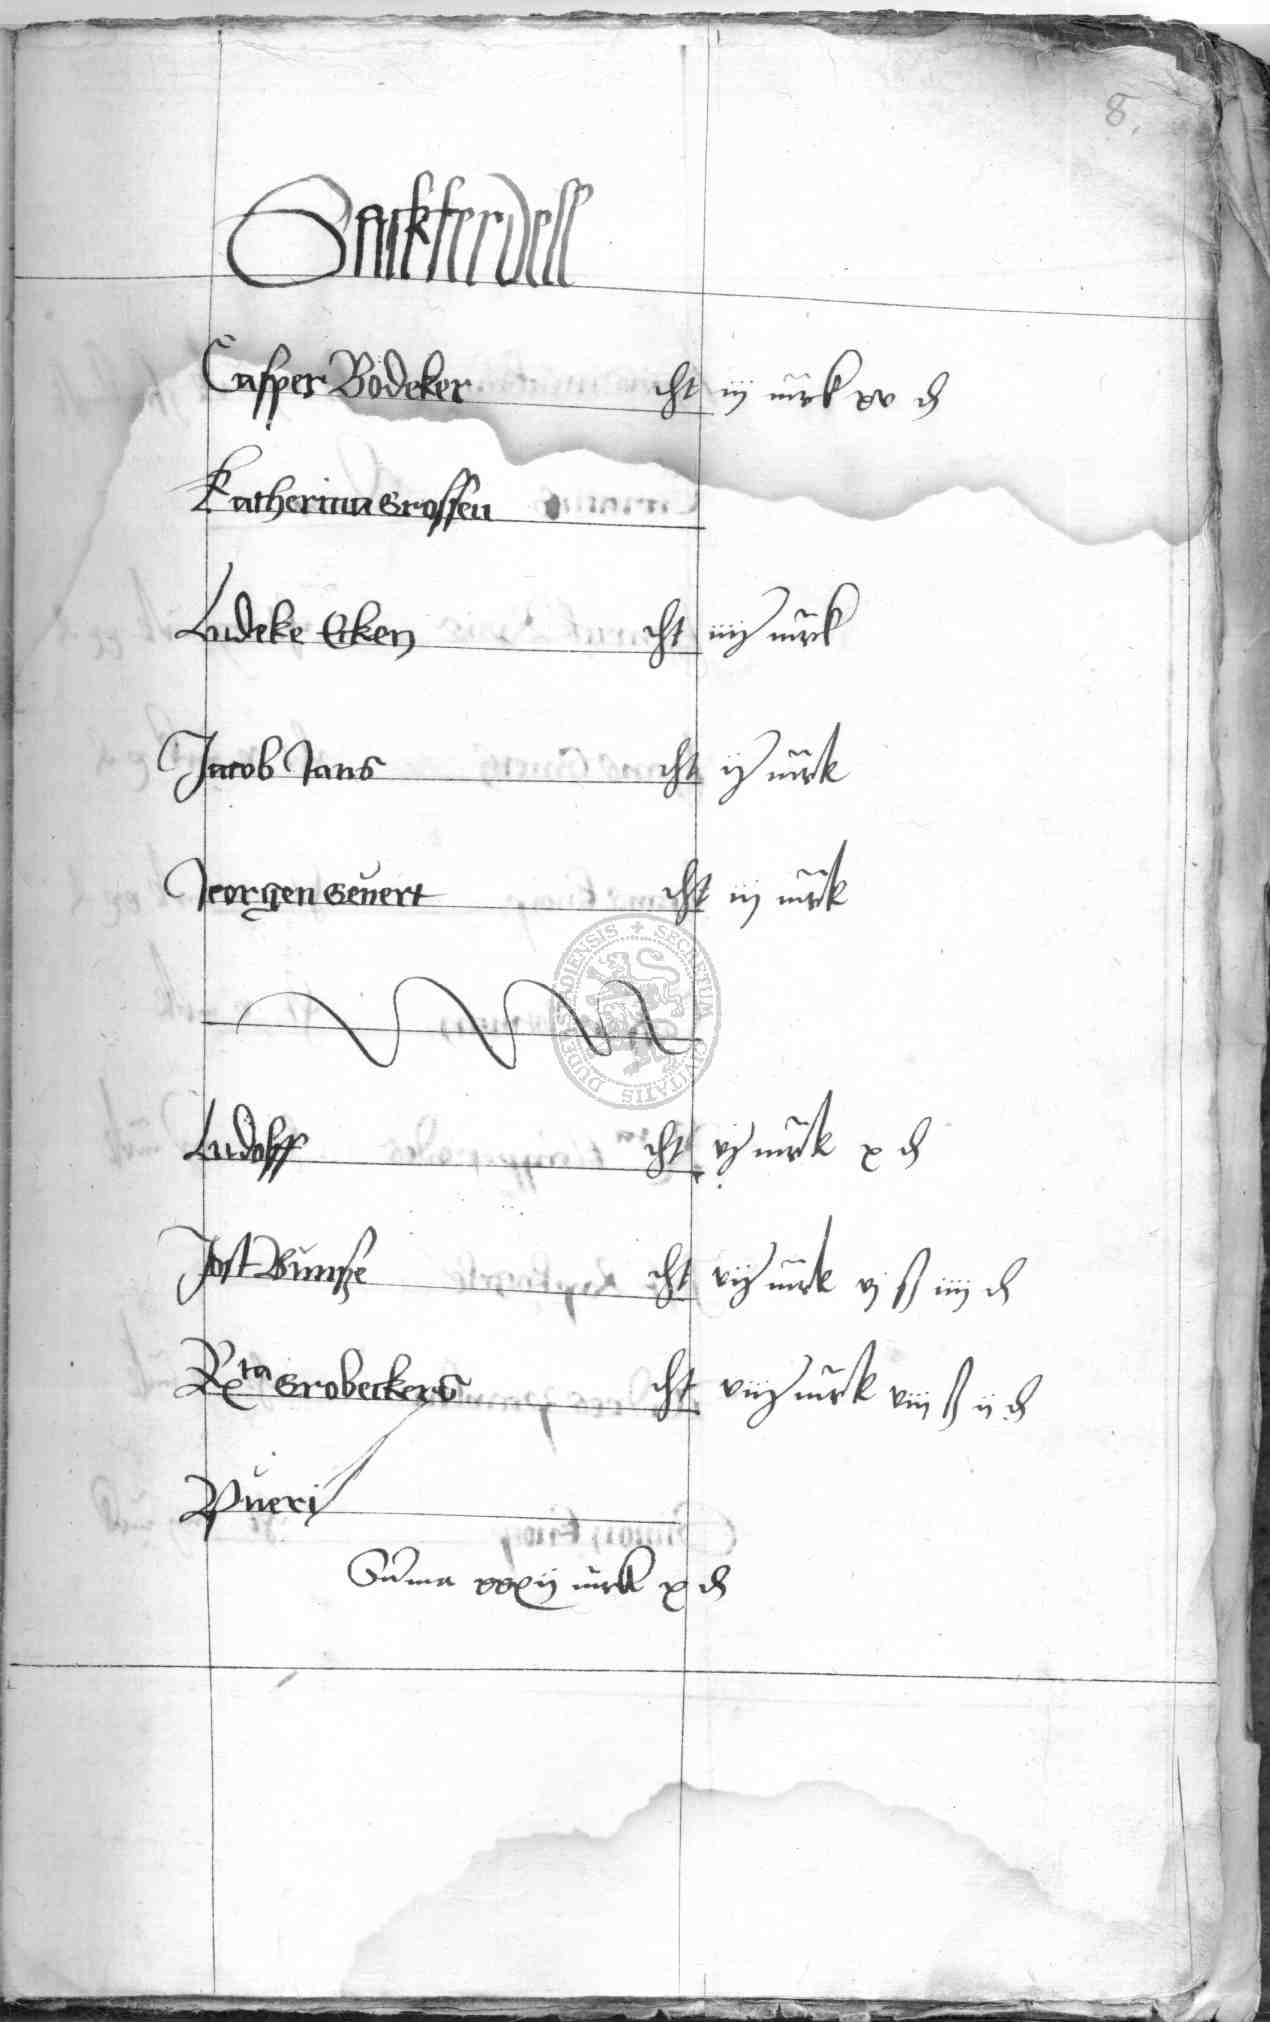 8.
Sackferdell
Casper Bodeker cht iij mrk xv d
Katherina Grossen
Ludeke Ecken cht iiij mrk
Jacob Jans cht ij mrk
Jeorgen Geuert cht iij mrk
Ludolff cht vj mrk x d
Jost Bunße cht vij mrk vj ß iiij d
Rcta Grobeckers cht viij mrk viij ß ij d
Pueri
Suma xxxij mrk x d
SECRETUM CIVITATIS DUDERSTADIENSIS